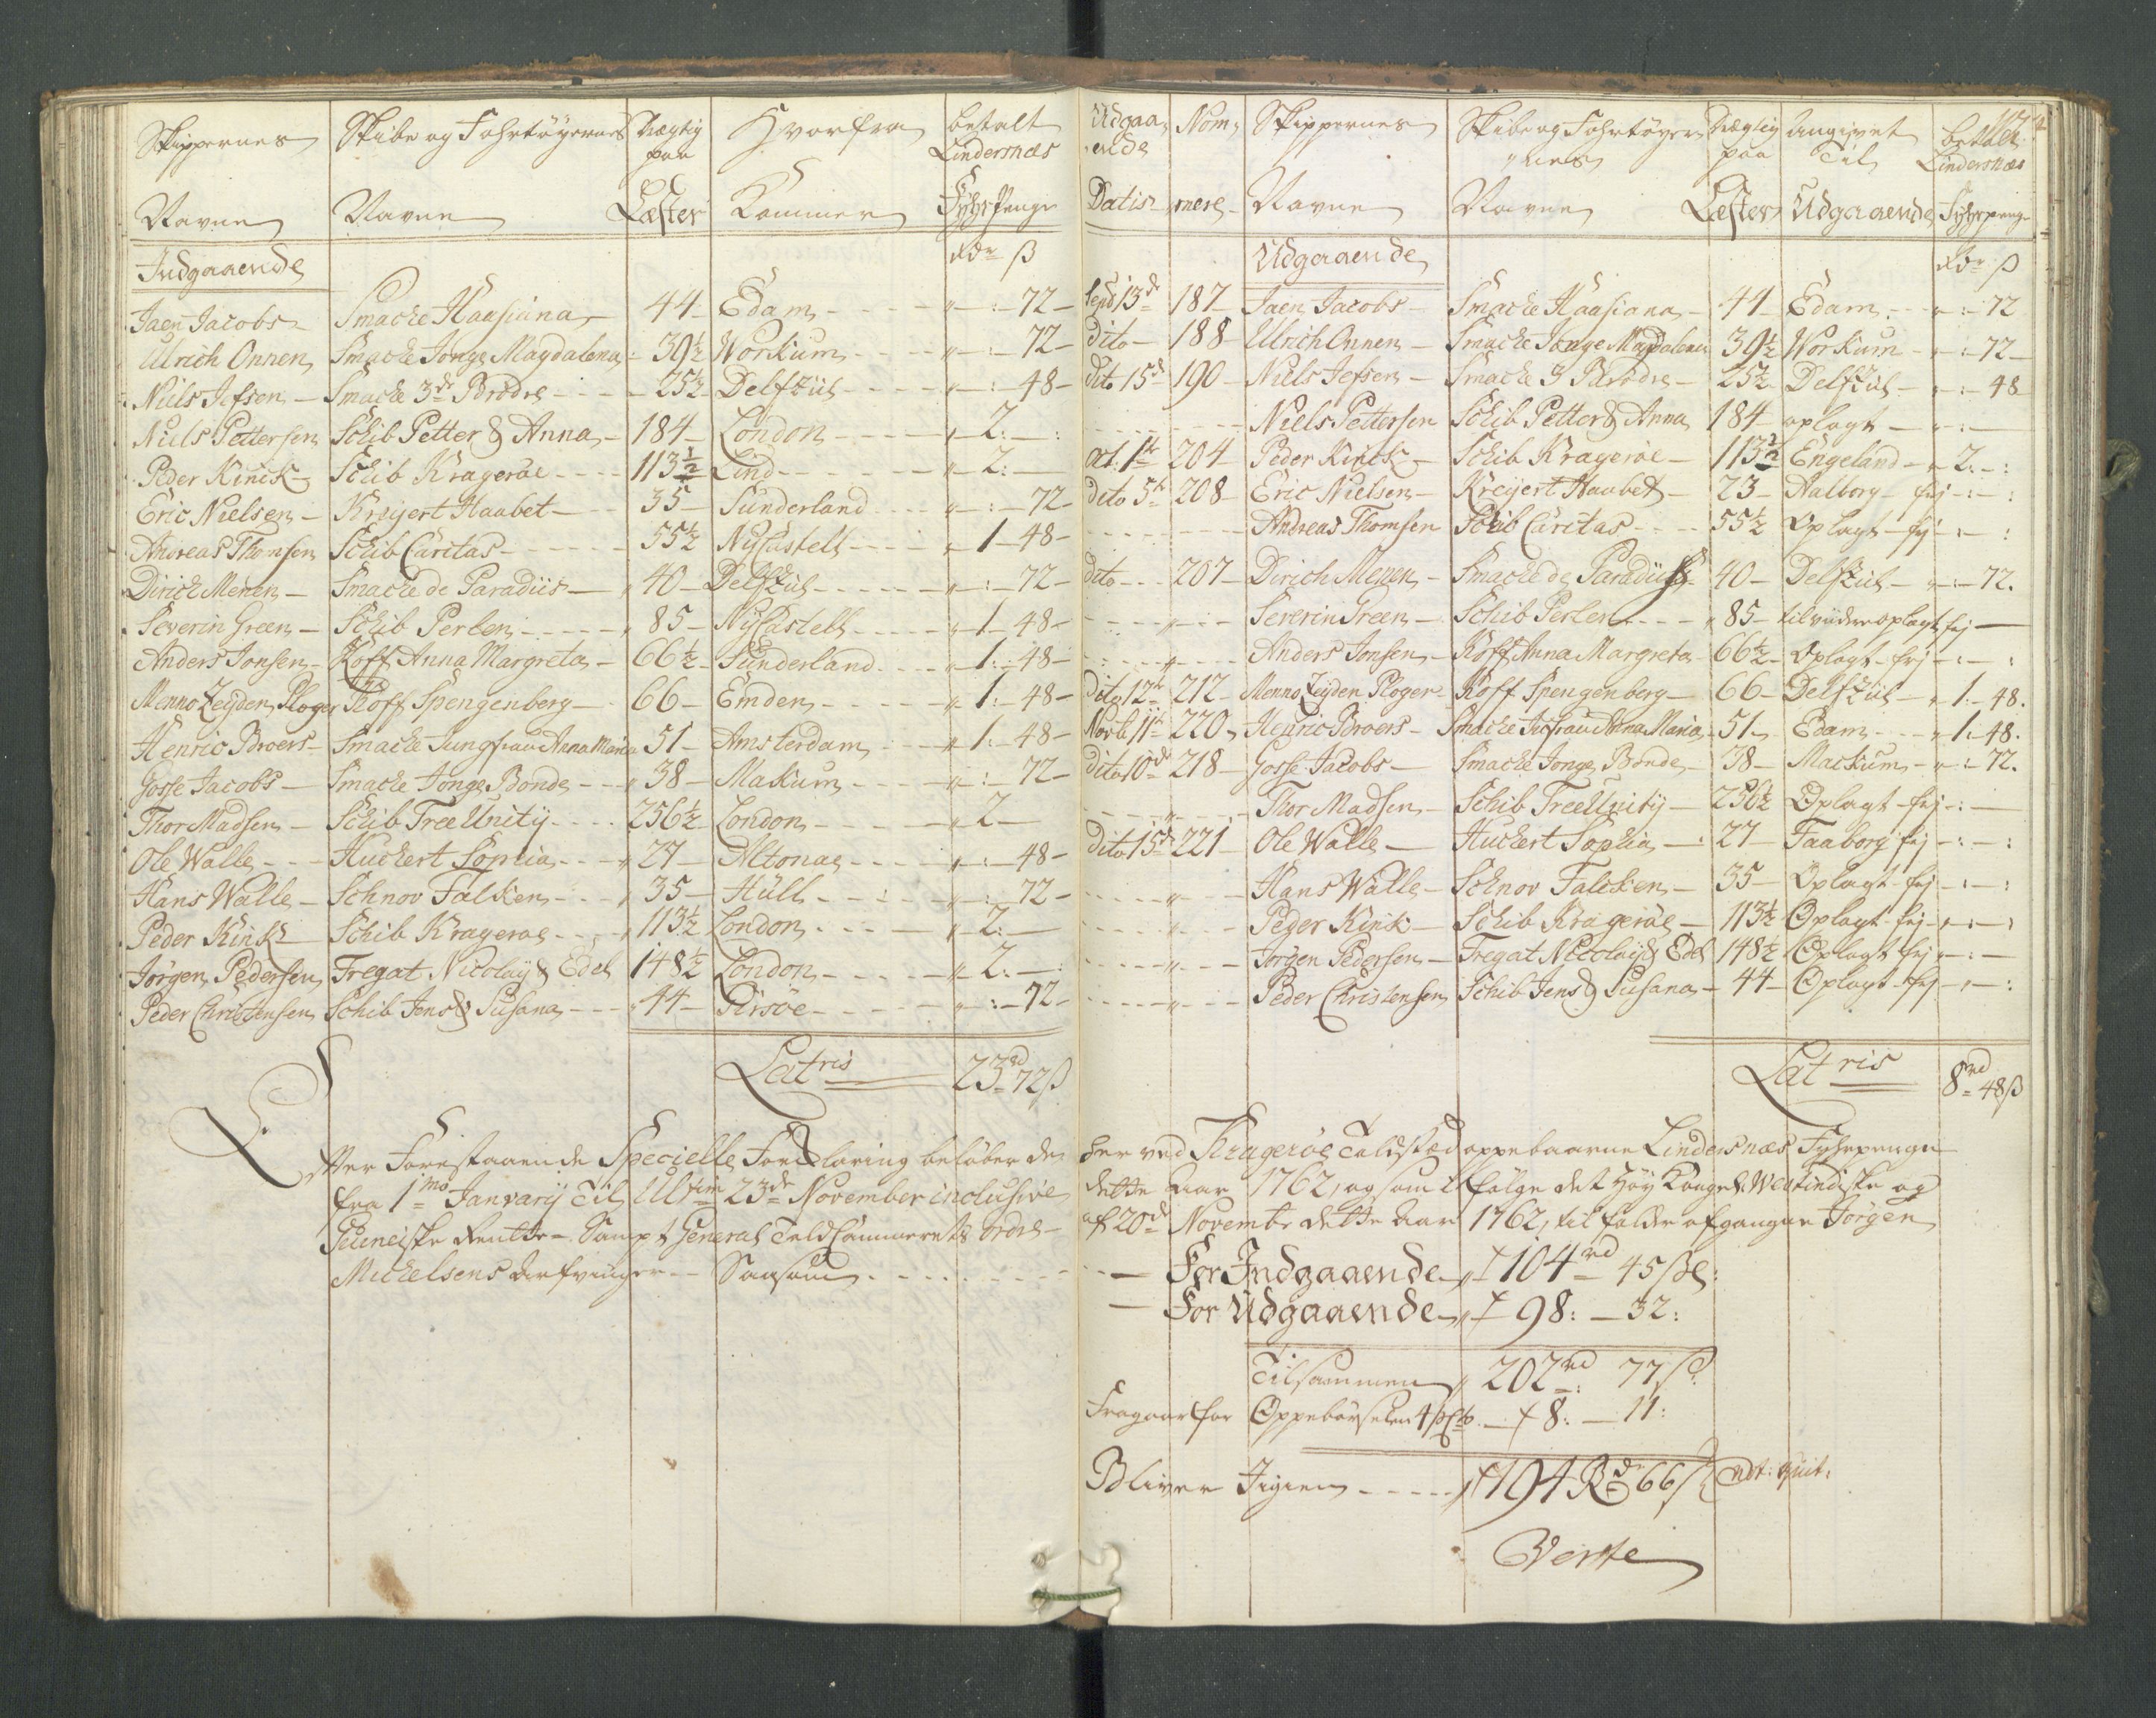 Skippernes Skibe og Fahrtöyernes Drægtig Hvorfra betalt
paa Lindersnæs
Navne Navne Læster Kommer Fyhr Penge
Indgaaende rdr ß
Jaen Jacobs Smacke Haasiana 44 Edam " : 72
Ulrich Onnen Smacke Jonge Magdalena 39½ Workum " : 72
Niels Jefsen Smacke 3de Brödre 25½ Delfzül " : 48
Niels Pettersen Schib Petter & Anna 184 London " 2 :
Peder Kinck Schib Krageröe 113½ Lind " 2 :
Eric Nielsen Kreijert Haabet 35 Sunderland " : 72
Andreas Thomsen Schib Caritas 55½ NyCastell " 1 48
Dirich Menen Smacke de Paradiis 40 Delfzül " : 72
Severin Green Schib Perlen 85 NyCastell " 1 48
Anders Jonsen Koff Anna Margreta 66½ Sunderland " 1 : 48
Menno Zeyden Ploger Koff Spengenberg 66 Emden " 1 : 48
Henric Broers Smacke Jungfrau Anna Maria 51 Amsterdam " 1 : 48
Gosse Jacobs Smacke Jonge Bonde 38 Makum " : 72
Thor Madsen Schib Free Unity 256½ London " 2
Ole Walle Huckert Sophia 27 Altonae " : 48
Hans Walle Schnov Falken 35 Hull " : 72
Peder Kink Schib Krageröe 113½ London " 2 :
Jörgen Pedersen Fregat Nicolay & Edel 148½ London " 2 :
Peder Christensen Schib Jens & Susana 44 Girsöe " : 72
Latris 23rd 72ß
Efter Forestaaende Specielle Forklaring beløber de
fra 1mo Janvarij Til Ultim 23de November inclusive
Guineiske Rentte- Sampt General Toldkammerets Ordre
Michelsens Arfvinger Saasom
Udgaa- Nom- Skippernes Skibe og Fahrtöyer- Drægtig Angivet betalt
ende nes paa Til Lindersnæs
Datis mere Navne Navne Læster Udgaaende Fyhrpenge
Udgaaende rdr ß
Sept 13de 187 Jaen Jacobs Smacke Haasiana 44 Edam " : 72
dito 188 Ulrich Onnen Smacke Jonge Magdalena 39½ Workum " : 72
dito 15de 190 Niels Jefsen Smacke 3 Brödre 25½ Delfzül " : 48
Niels Pettersen Schib Petter & Anna 184 oplagt " :
Oct: 1te 204 Peder Kinck Schib Krageröe 113½ Engeland " 2 :
dito 5te 208 Eric Nielsen Kreijert Haabet 23 Aalborg frj :
Andreas Thomsen Schib Caritas 55½ Oplagt frj :
dito 207 Dirich Menen Smacke de Paradiis 40 Delfzül " : 72.
Severin Green Schib Perlen 85 til viidere oplagt frj
Anders Jonsen Koff Anna Margreta 66½ Oplagt frj :
dito 12te 212 Menno Zeyden Ploger Koff Spengenberg 66 Delfzül " 1 : 48.
Novb 11te 220 Henric Broers Smacke Jufrau Anna Maria 51 Edam " 1 : 48.
dito 10de 218 Gosse Jacobs Smacke Jonge Bonde 38 Mackum " : 72.
Thor Madsen Schib Free Unity 256½ Oplagt frj :
dito 15de 221 Ole Walle Huckert Sophia 27 Faaborg frj :
Hans Walle Schnov Falcken 35 Oplagt frj :
Peder Kink Schib Krageröe 113½ Oplagt frj :
Jörgen Pedersen Fregat Nicolay & Edel 148½ Oplagt frj :
Peder Christensen Schib Jens & Susana 44 Oplagt frj :
Latris 8rd 48ß
her ved Krageröe Toldsted oppebaarne Lindersnæs Fyhrpenge
dette Aar 1762, og som i følge det Höy Kongel. Westindiske og
af 20de Novembr dette Aar 1762, tilfalder afgangne Jörgen
For Indgaaende 104rd 45ß
For Udgaaende 98: 32:
Tilsammen 202rd: 77ß
Fragaar for Oppebörselen 4 prCto 8: 11:
Bliver Igien 194Rd 66ß
Verte